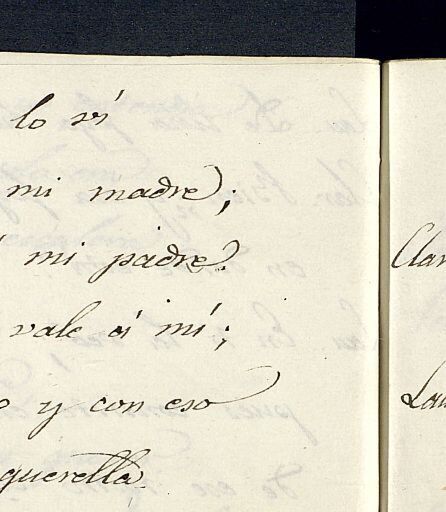 lo ví
mi madre;
mi padre.
vale á mí;
y con eso
querella
Clar
Lau